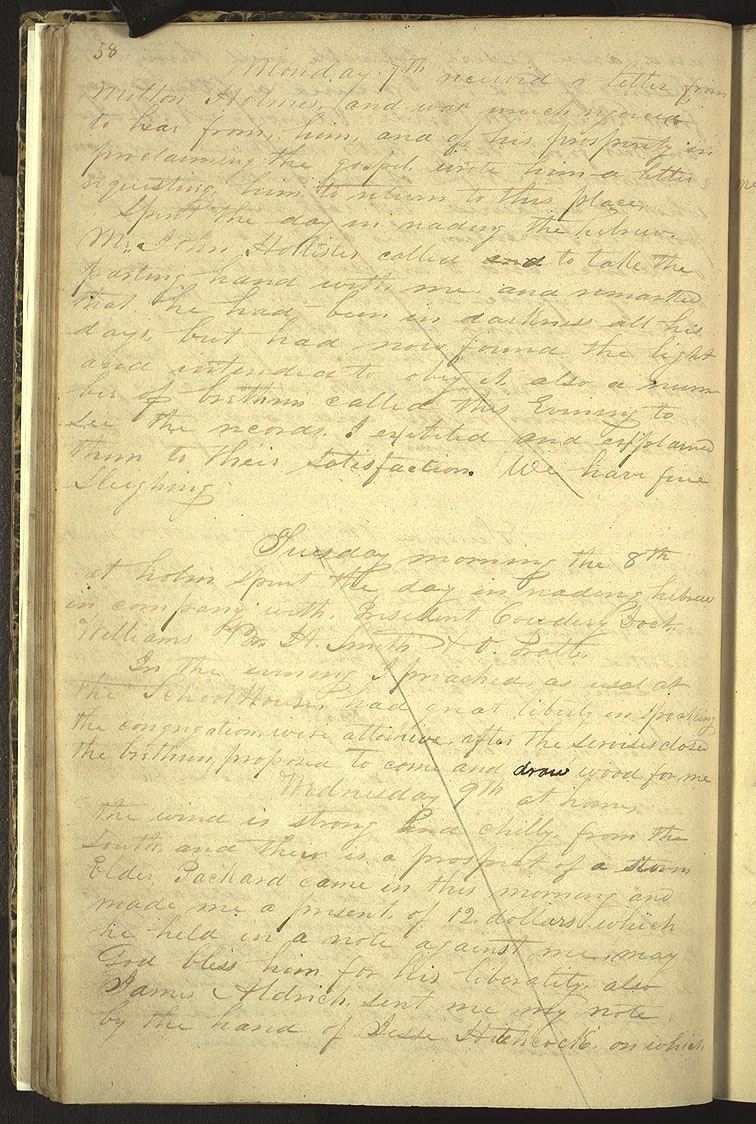 58
Monday 7th received a letter from
Milton Holmes, and was much rejoiced
to hear from, him, and of his prosperity in
proclaiming the gospel, wrote him a letter
requesting him to return to this place,
Spent the day in reading the hebrew.
Mr. John Hollister called and to take the
parting hand with me, and remarked
that he had been in darkness all his
days, but had now found the light
and intended to obey it. also a num
ber of brethren called this Evening to
see the records. I exibited and explained
them to their satisfaction. We have fine
Sleighing
Tuesday morning the 8th
at holm spent the day in reading hebrew
in company with, President Cowdery Doct.
Williams Br. H. Smith & O. Pratt.
In the evening I preached, as usal at
the School House, had great liberty in speaking
the congregation, were attentive, after the services closed
the brethren proposed to come and draw wood for me
Wednesday 9th at home,
the wind is strong and chilly, from the
south, and there is a prospect of a storm
Elder, Packard came in this morning and
made me a present, of 12, dollars which
he held in a note against me, may
God bless him for his liberality, also
James Aldrich, sent me my note
by the hand of Jesse Hitchcock, on which